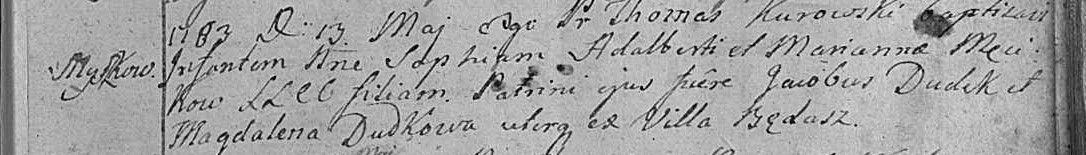 1783 D: 13 Maj Ego Pr Thomas Kurowski baptizavi
Myszkow. Infantem Nne Sophiam Adalberti et Mariannæ Męci-
kow LLCC filiam. Patrini ejus fuere Jacobus Dudek et
Magdalena Dudkowa uterq ex Villa Będusz.